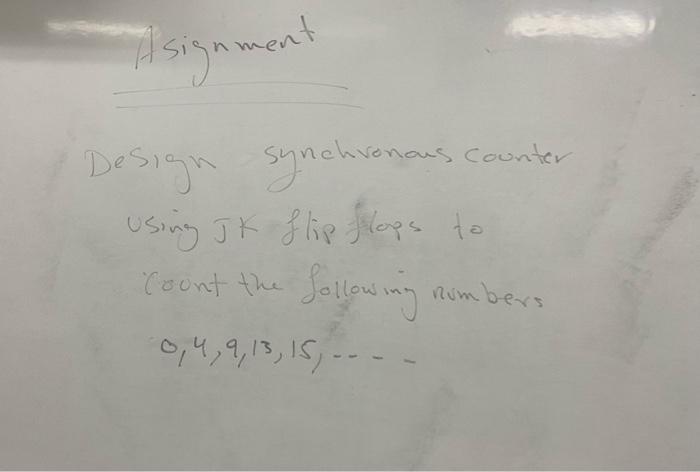 Asignment
Design synchronous counter
using JK flip flops to
Count the following numbers
0,4,9,13,15,----